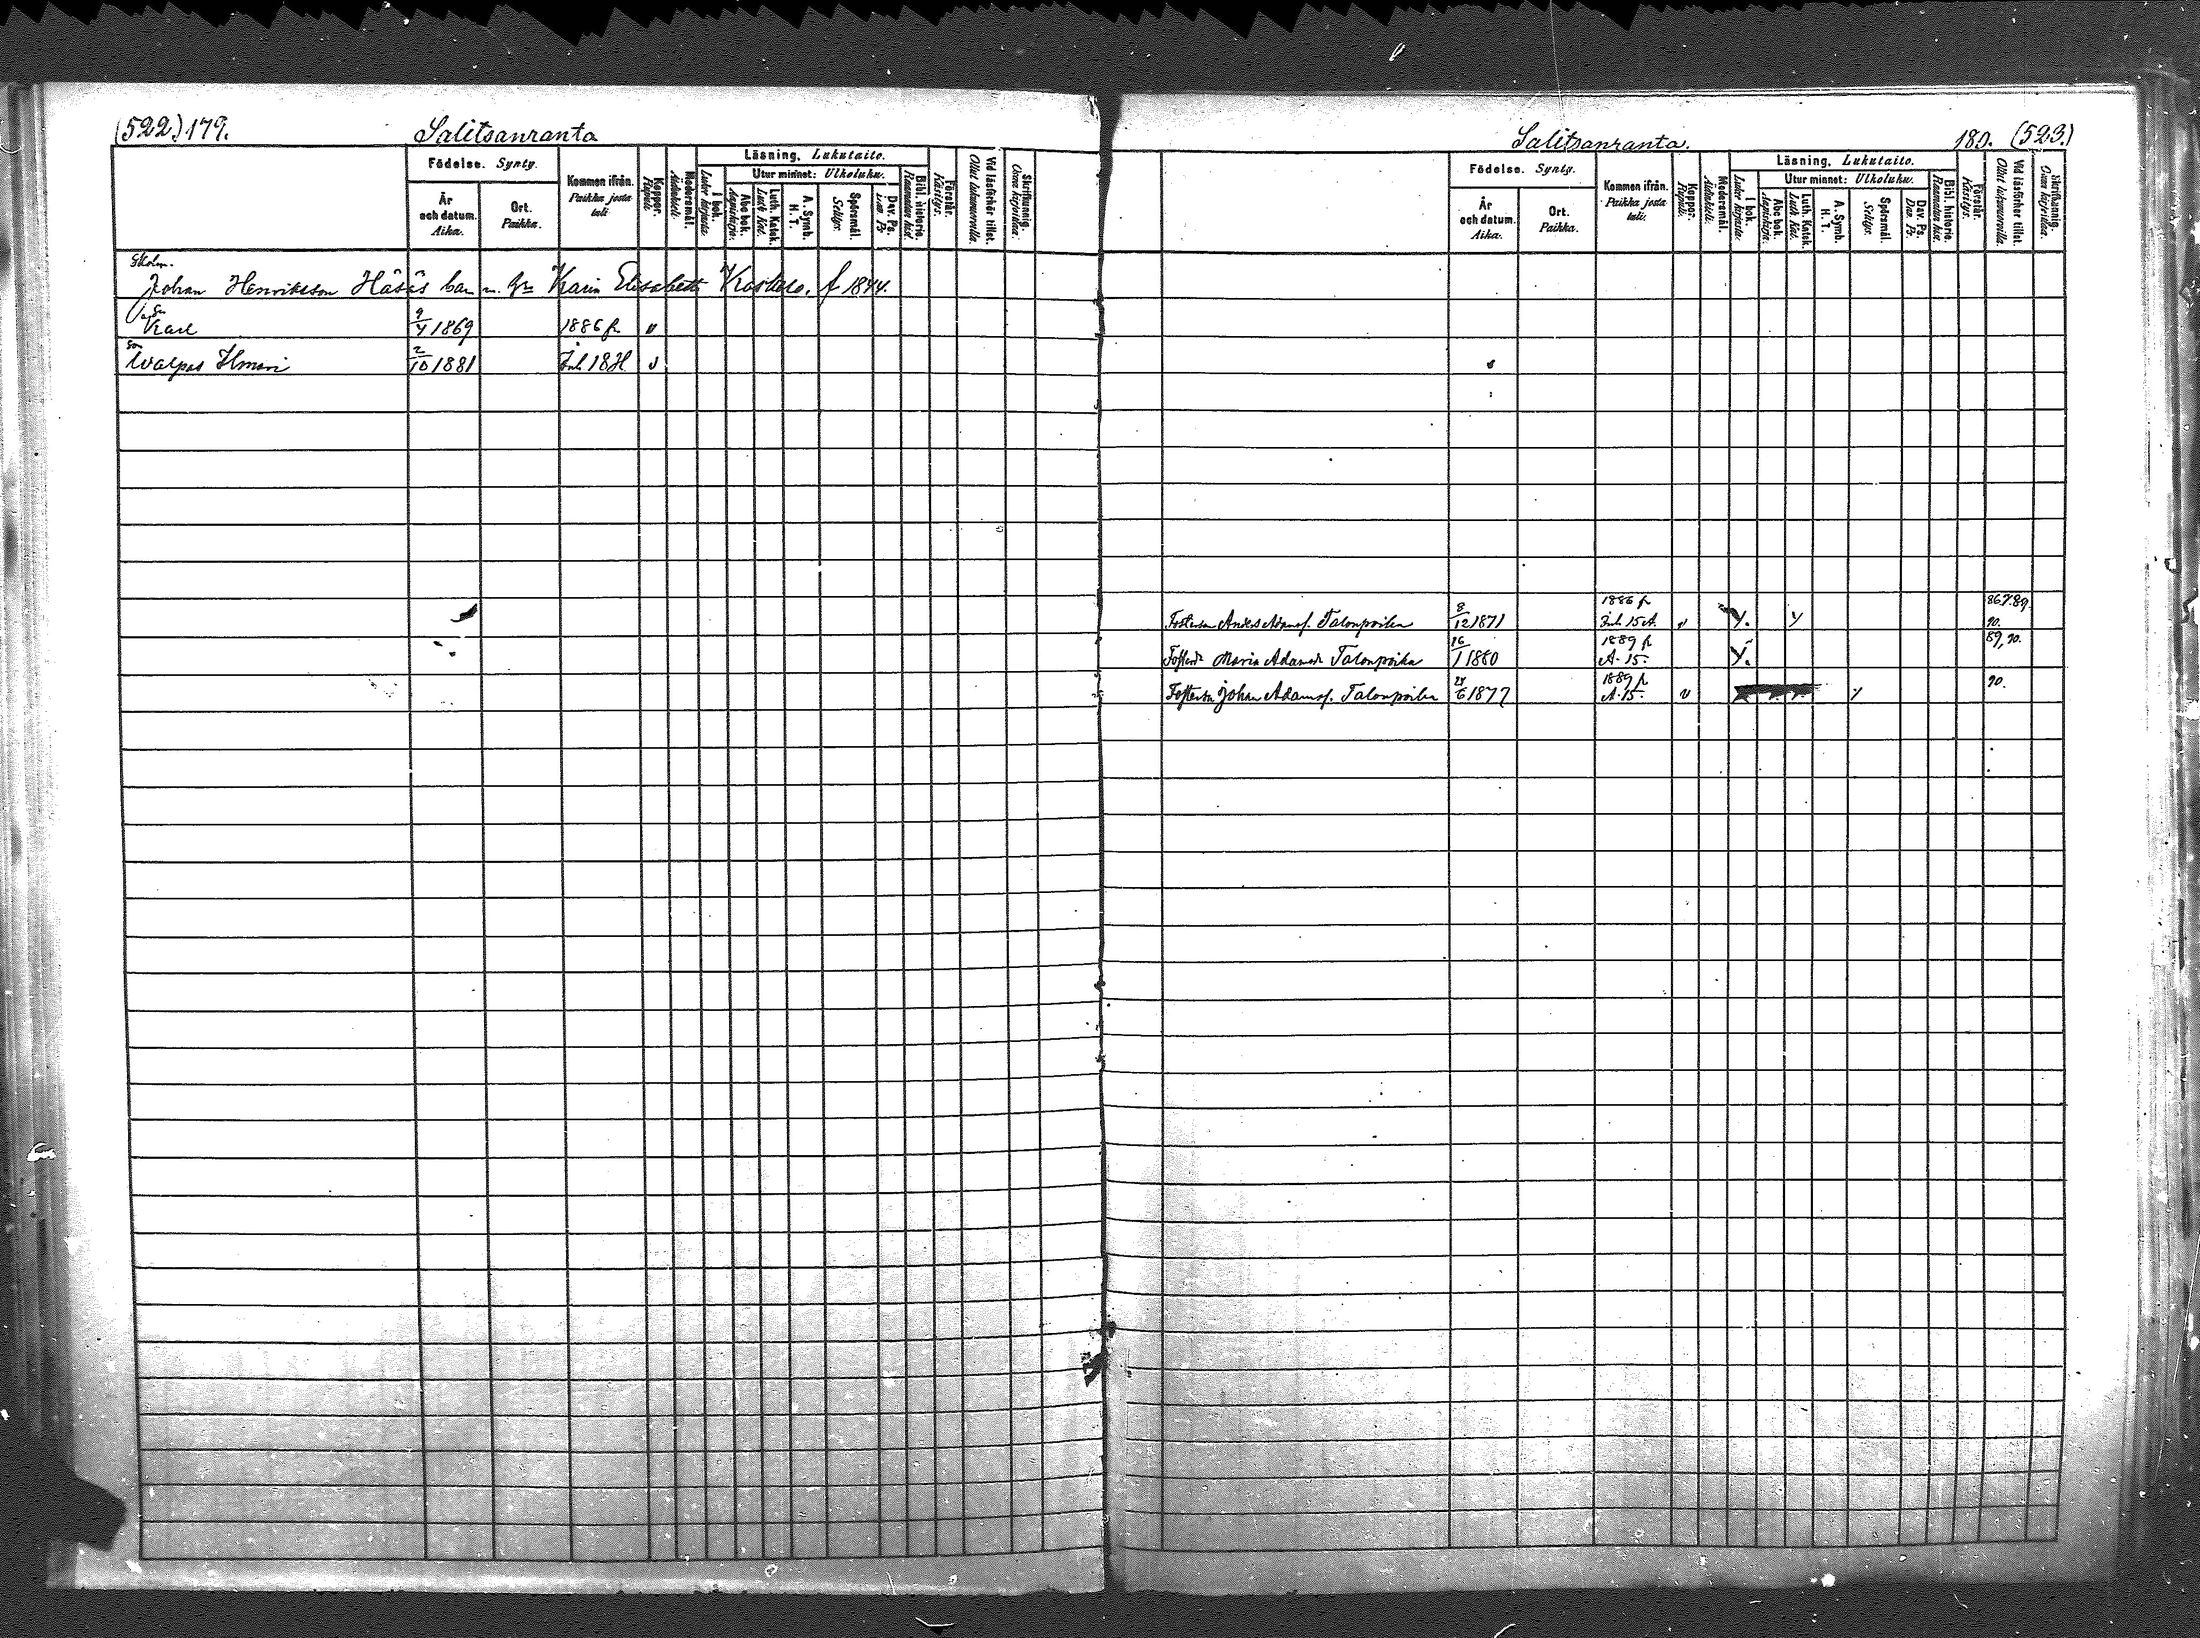 (522) 179.
Salitsanranta
Födelse. Synty.
År och datum. Aika.
Ort. Paikka.
Kommen ifrån. Paikka josta tuli
Koppor. Rupuli.
Modersmål. Äidinkieli.
Läsning, Lukutaito.
I bok. Luku kirjasta.
Utur minnet: Ulkoluku.
Abc bok. Aapiskirja.
Luth. Katek. Luth. Kat.
A. Symb. H. T.
Spörsmål. Selitys.
Dav. Ps. Dav. Ps.
Bibl. historie. Raamatun hist.
Förstår. Käsitys.
Vid läsförhör tillst. Ollut lukuvuorolla.
Skrifkunnig. Osaa kirjoittaa.
Johan Henriksson Häsäs barn m. hu Karin Elisabeth f 1844.
Karl 9/4 1869 1886 fr v
son
Walpas Ilmari 2/10 1881 Inb. 18 H v
Salitsanranta.
180. (523)
Födelse. Synty.
År och datum. Aika.
Ort. Paikka.
Kommen ifrån. Paikka josta tuli:
Koppor. Rupuli.
Modersmål. Äidinkieli.
Läsning, Lukutaito.
I bok. Luku kirjasta.
Utur minnet: Ulkoluku.
Abc bok. Aapiskirja.
Luth. Katek. Luth. Kat.
A. Symb. H. T.
Spörsmål. Selitys.
Dav. Ps. Dav. Ps.
Bibl. historie. Raamatun hist.
Förstår. Käsitys.
Vid läsförhör tillst. Ollut lukuvuorolla.
Skrifkunnig. Osaa kirjoittaa.
1886 fr 86,7.89.
Fosterson Anders Adamss. Talonpoika 8/12 1871 Inb. 15 A. v Y. Y 90.
1889 fr 89, 90.
Fosterd. Maria Adamsd. Talonpoika 16/1 1880 A. 15. Y.
1889 fr 90.
Fosterson Johan Adamss. Talonpoika 24/6 1877 A. 15. v